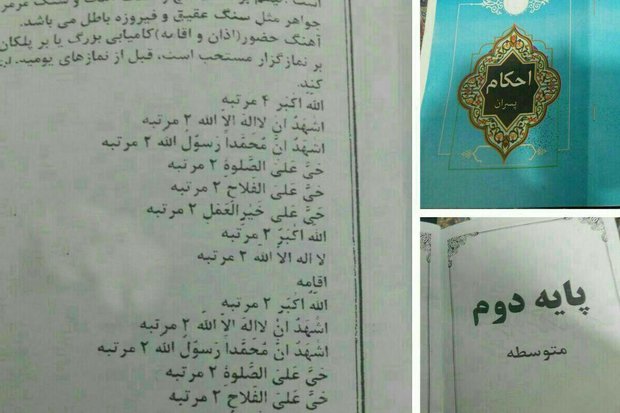 جواهر مثل سنگ عقیق و فیروزه باطل می باشد.
آهنگ حضور(اذان و اقامه)کامیابی بزرگ یا بر پلکان
بر نمازگزار مستحب است، قبل از نمازهای یومیه،
کند.
الله اکبر ۴ مرتبه
اَشهَدُ انَ لااله الاَ الله ۲ مرتبه
اَشهَدُ انَ مُحَمَّداً رَسولُ الله ۲ مرتبه
حَیَّ عَلیَ الصَّلوة ۲ مرتبه
حَیَّ عَلیَ الفَلاحِ ۲ مرتبه
حَیَّ عَلی خَیرِالعَمَلِ ۲ مرتبه
الله اَکبَرِ ۲ مرتبه
لا اله الاَ الله ۲ مرتبه
اقامه
اللهُ اَکبَرِ ۲ مرتبه
اَشهَدُ انَ لااله الاَ الله ۲ مرتبه
اَشهَدُ انَ مُحَمَّداً رَسولُ الله ۲ مرتبه
حَیَّ عَلیَ الصَّلوة ۲ مرتبه
حَیَّ عَلیَ الفَلاحِ ۲ مرتبه
احکام
پسران
پایه دوم
متوسطه